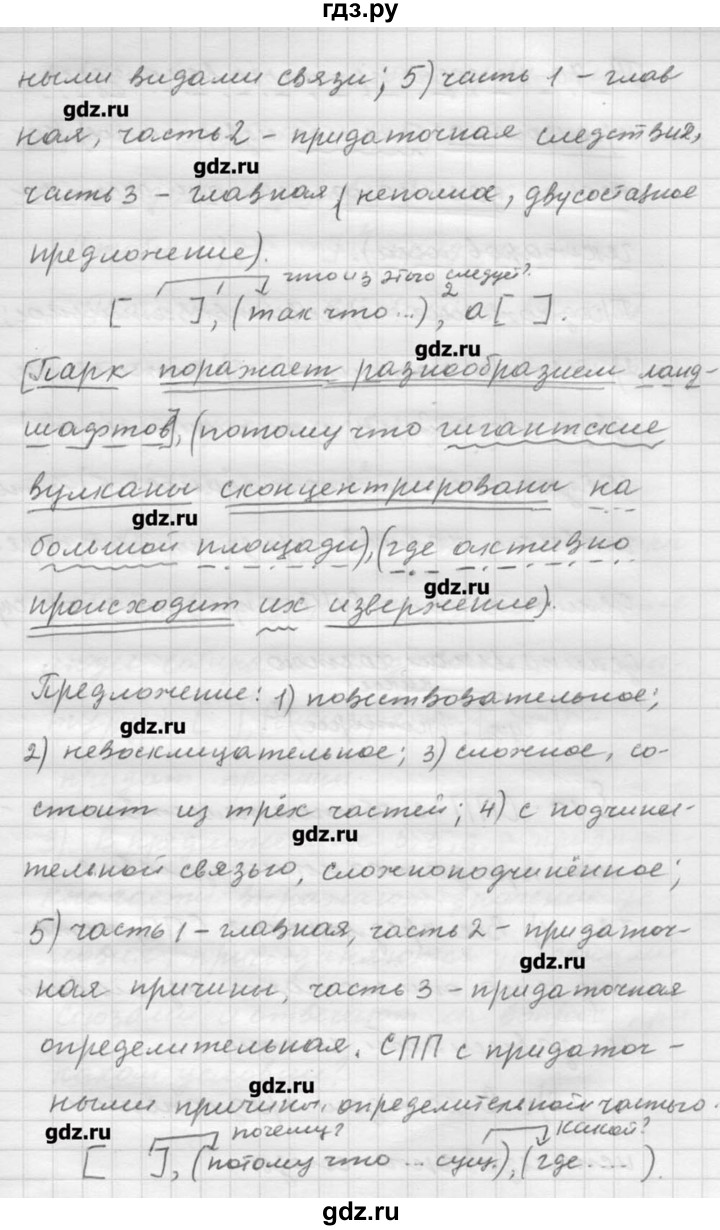 гдз.ру
ными видами связи; 5) часть 1 – глав
gdz.ru
ная, часть 2 – придаточная следствия,
gdz.ru
часть 3 – главная (неполное, двусоставное
предложение).
что из этого следует?
[ ], (так что...), 2 а [ ].
gdz.ru
[Парк поражает разнообразием ланд-
шафтов], (потому что гигантские
вулканы сконцентрированы на
gdz.ru
большой площади), (где активно
gdz.ru
происходит их извержение).
Предложение: 1) повествовательное;
gdz.ru
2) невосклицательное; 3) сложное, со-
стоит из трёх частей; 4) с подчини-
gdz.ru
тельной связью, сложноподчинённое;
5) часть 1 – главная, часть 2 – придаточ-
gdz.ru
ная причины, часть 3 – придаточная
определительная. СПП с придаточ-
gdz.ru
ными причины, определительной частью.
gdz.ru
почему? какой?
[ ], (потому что ... сущ.), (где ....).
gdz.ru
gdz.ru